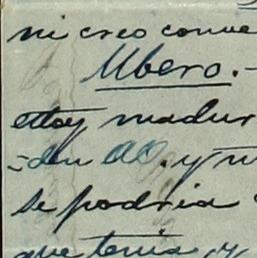 ni creo conve
Ubero.-
estoy madur
-den OC. y m
se podria
que tenia, y